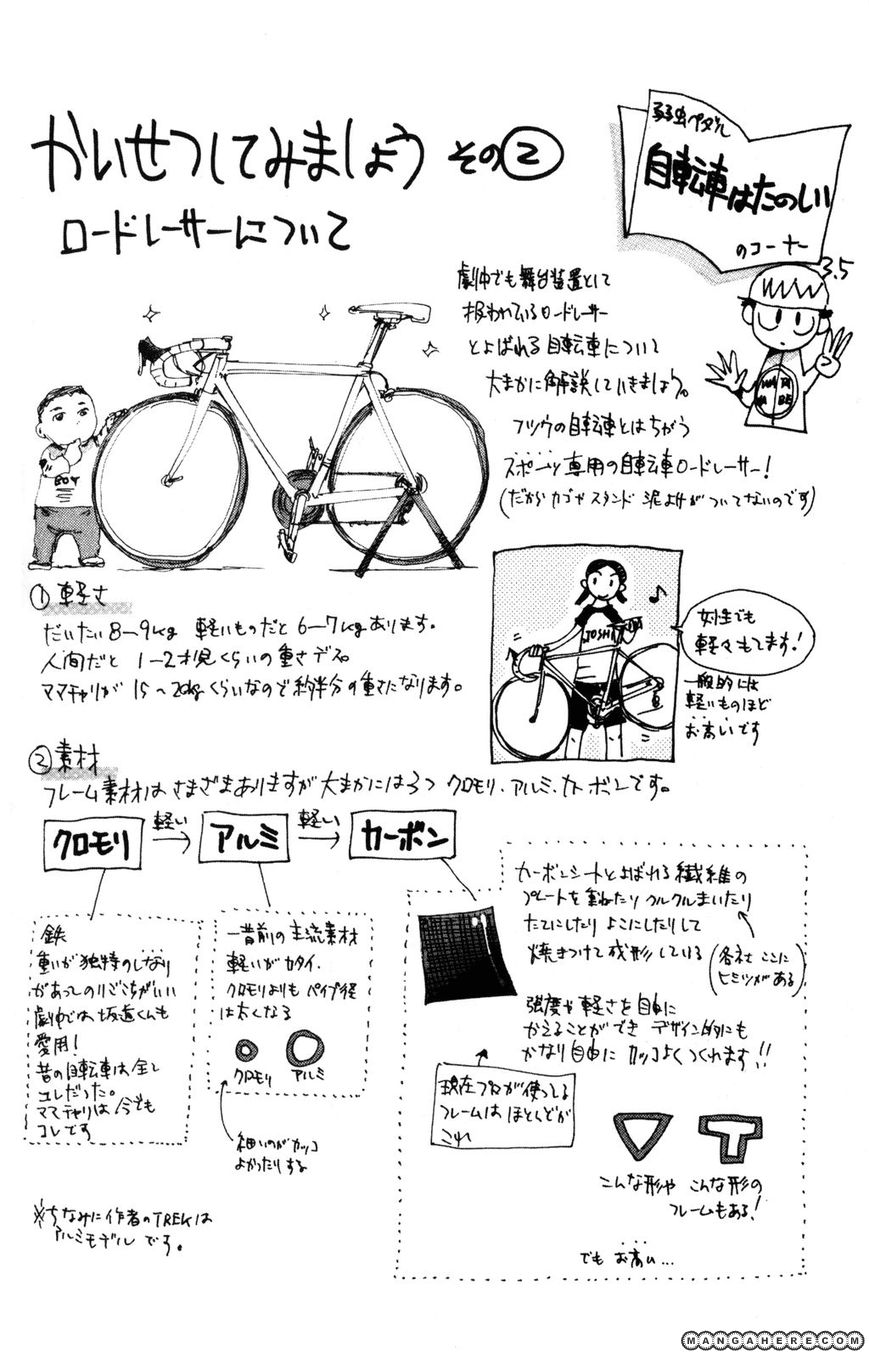 かいせつしてみましょう その②
ロードレーサーについて
弱虫ペダル
自転車はたのしい
のコーナー
3.5
劇中でも舞台装置として
扱われているロードレーサー
とよばれる自転車について
大まかに解説していきましょう。
フツウの自転車とはちがう
スポーツ専用の自転車ロードレーサー!
(だからカゴやスタンド 泥よけがついてないのです)
BOY
①軽さ
だいたい8〜9kg 軽いものだと6〜7kgあります。
人間だと 1〜2才児くらいの重さデス。
ママチャリが 15〜20kgくらいなので約半分の重さになります。
JOSHI
女性でも
軽々もてます!
一般的には
軽いものほど
お高いです
②素材
フレーム素材はさまざまありますが大まかには3つ クロモリ、アルミ、カーボンです。
クロモリ
軽い
アルミ
軽い
カーボン
鉄
重いが独特のしなり
があってのりごこちがいい
劇中では坂道くんも
愛用!
昔の自転車は全て
コレだった。
ママチャリは今でも
コレです
一昔前の主流素材
軽いがカタイ.
クロモリよりもパイプ径
は太くなる
クロモリ
アルミ
細いのがカッコ
よかったりする
カーボンシートとよばれる繊維の
プレートを重ねたり クルクルまいたり
たてにしたり よこにしたりして
焼きつけて成形している
(各社ここに
ヒミツがある)
強度や軽さを自由に
かえることができ デザイン的にも
かなり自由に カッコよくつくれます!!
現在プロが使ってる
フレームは ほとんどが
これ
こんな形や こんな形の
フレームもある!
でも お高い…
※ちなみに作者のTREKは
アルミモデルです。
MANGAHERE.COM